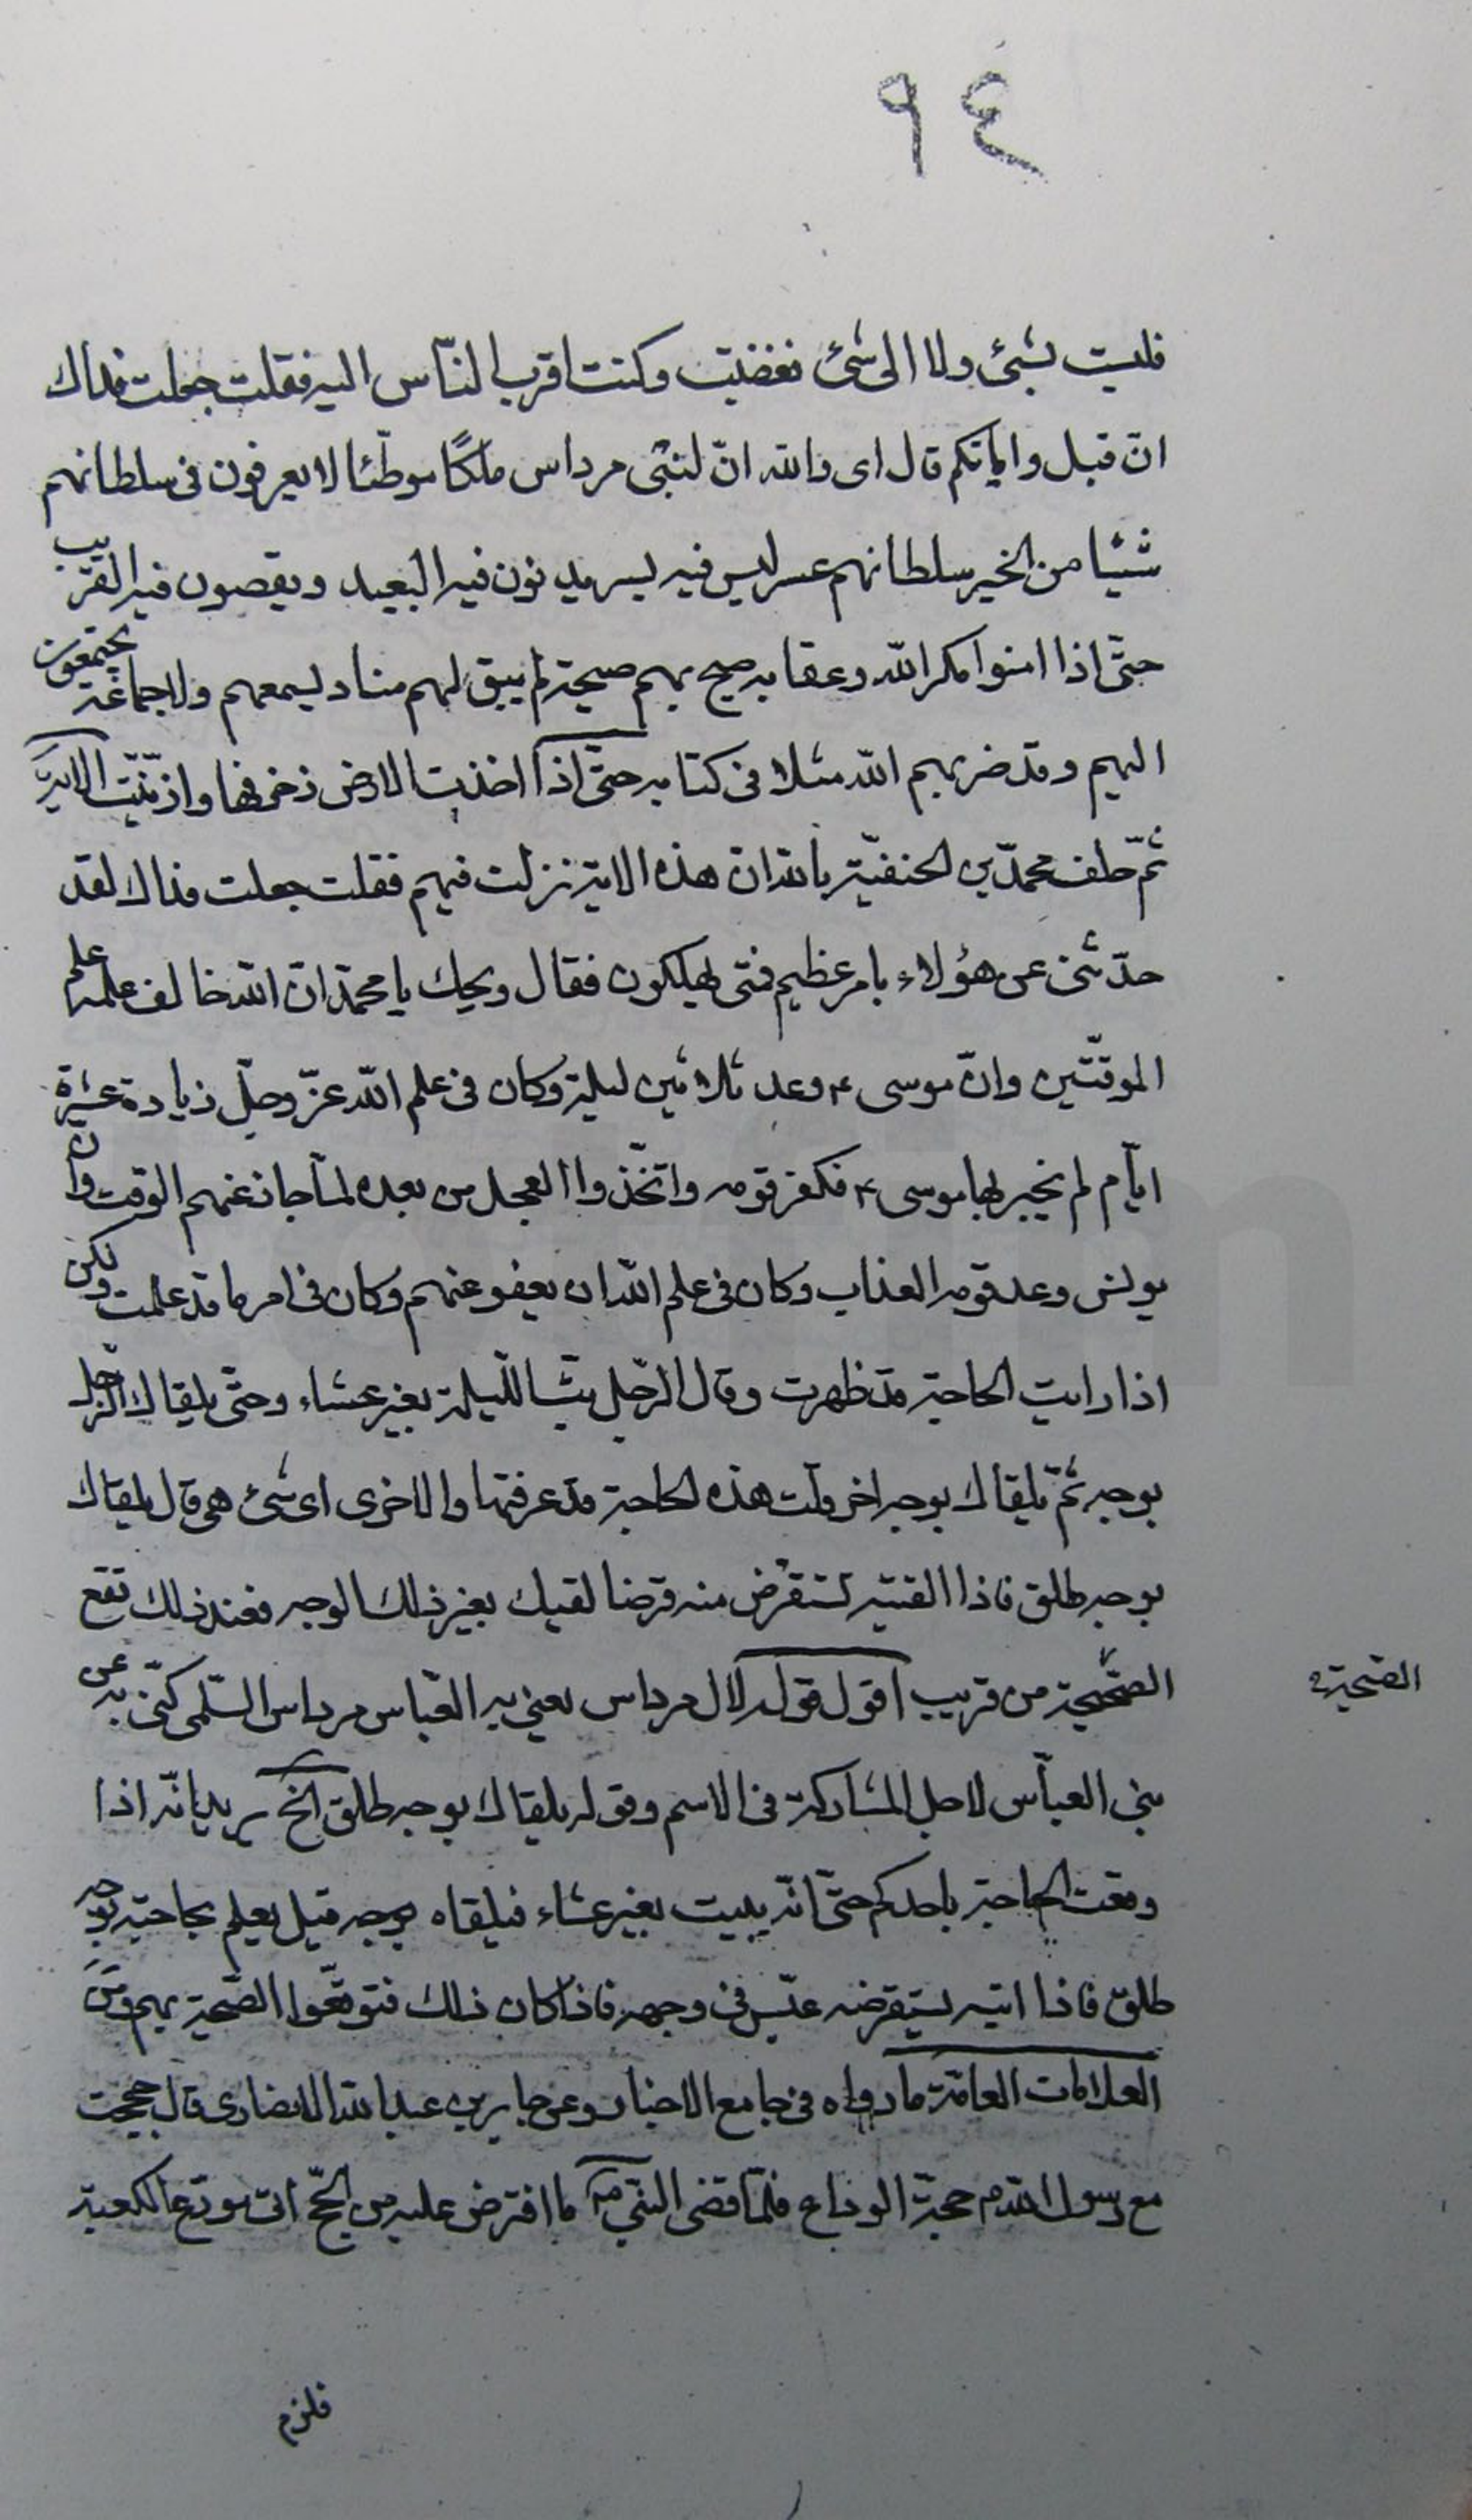 ٩٤
فليست بشئ ولا الى شئ فغضبت وكنت اقرب الناس اليه فقلت جعلت فداك
انّ قبل واياتكم قال اى والله انّ لبنى مرداس ملكًا موطّئا لا يعرفون فى سلطانهم
شيئا من الخير سلطانهم عسر ليس فيه يسر يدنون فيه البعيد ويقصون فيه القريب
حتّى اذا امنوا مكر الله وعقابه صيح بهم صيحة لم يبق لهم مناد يسمعهم ولا جماعة يجتمعون
اليهم وقد ضربهم الله مثلا فى كتابه حتّى اذا اخذت الارض زخرفها وازّيّنت الاية
ثمّ حلف محمّد بن الحنفيّة بالله ان هذه الاية نزلت فيهم فقلت جعلت فداك لقد
حدّثنى عن هؤلاء بامر عظيم فمتى يهلكون فقال ويحك يا محمّد انّ الله خالف علمه علم
الموقّتين وانّ موسى ع وعد ثلاثين ليلة وكان فى علم الله عزّ وجلّ زيادة عشرة
ايّام لم يخبر بها موسى ع فكفر قومه واتّخذوا العجل من بعده لمّا جاز عنهم الوقت وانّ
يونس وعد قومه العذاب وكان فى علم الله ان يعفو عنهم وكان فى امره ما قد علمت ولكن
اذا رايت الحاجة قد ظهرت وقال الرّجل بتّ اللّيلة بغير عشاء وحتّى يلقاك الرّجل
بوجه ثمّ يلقاك بوجه اخر قلت هذه الحاجة قد عرفتها والاخرى اى شئ هى قال يلقاك
بوجه طلق فاذا القيته تستقرض منه قرضا لقيك بغير ذلك الوجه فعند ذلك تقع
الصّحيحة من قريب اقول قوله لال مرداس يعنى به العبّاس مرداس السّلمى كنّى به عن
بنى العبّاس لاجل المشاركة فى الاسم وقوله يلقاك بوجه طلق الخ يريد انّه اذا
وقعت الحاجة باحدكم حتّى انّه يبيت بغير عشاء فيلقاه بوجه قبل يعلم بحاجته بوجه
طلق فاذا اتيه يستقرضه عبّس فى وجهه فاذا كان ذلك فتوقّعوا الصّيحة بهم ومن
العلامات العامّة ما رواه فى جامع الاخبار وعن جابر بن عبد الله الانصارى قال حججت
مع رسول الله ص حجّة الوداع فلمّا قضى النبّى ص ما افترض عليه من الحجّ اتى مودّع الكعبة
الصّيحة
فلزم